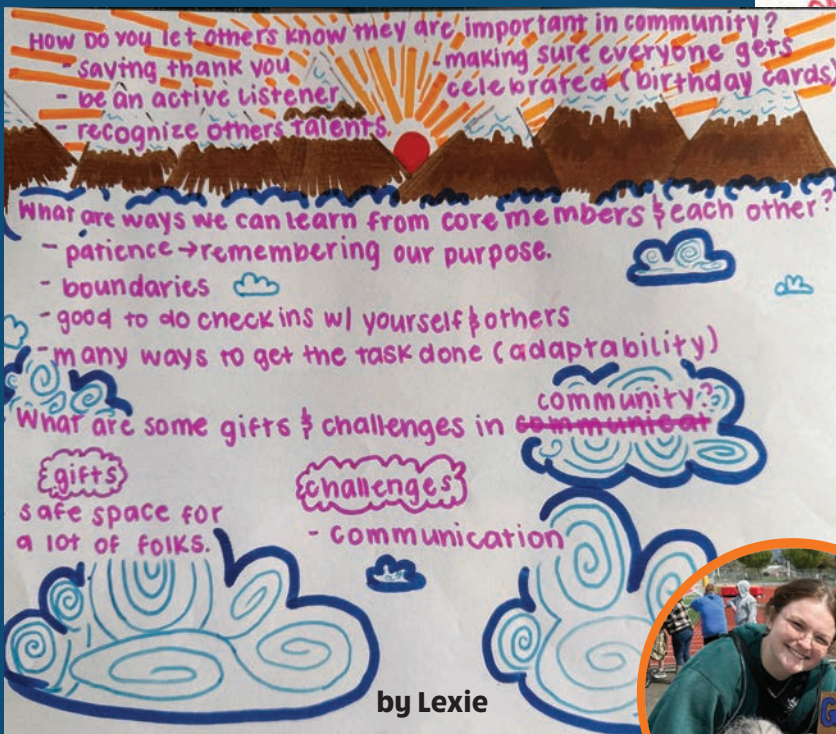 How Do you let others know they are important in community?
- saying thank you
- be an active listener
- recognize others talents.
- making sure everyone gets
celebrated (birthday cards)
What are ways we can learn from core members & each other?
- patience → remembering our purpose.
- boundaries
- good to do check ins w/ yourself & others
- many ways to get the task done (adaptability)
What are some gifts & challenges in communicat community?
gifts
safe space for
a lot of folks.
challenges
- communication
by Lexie